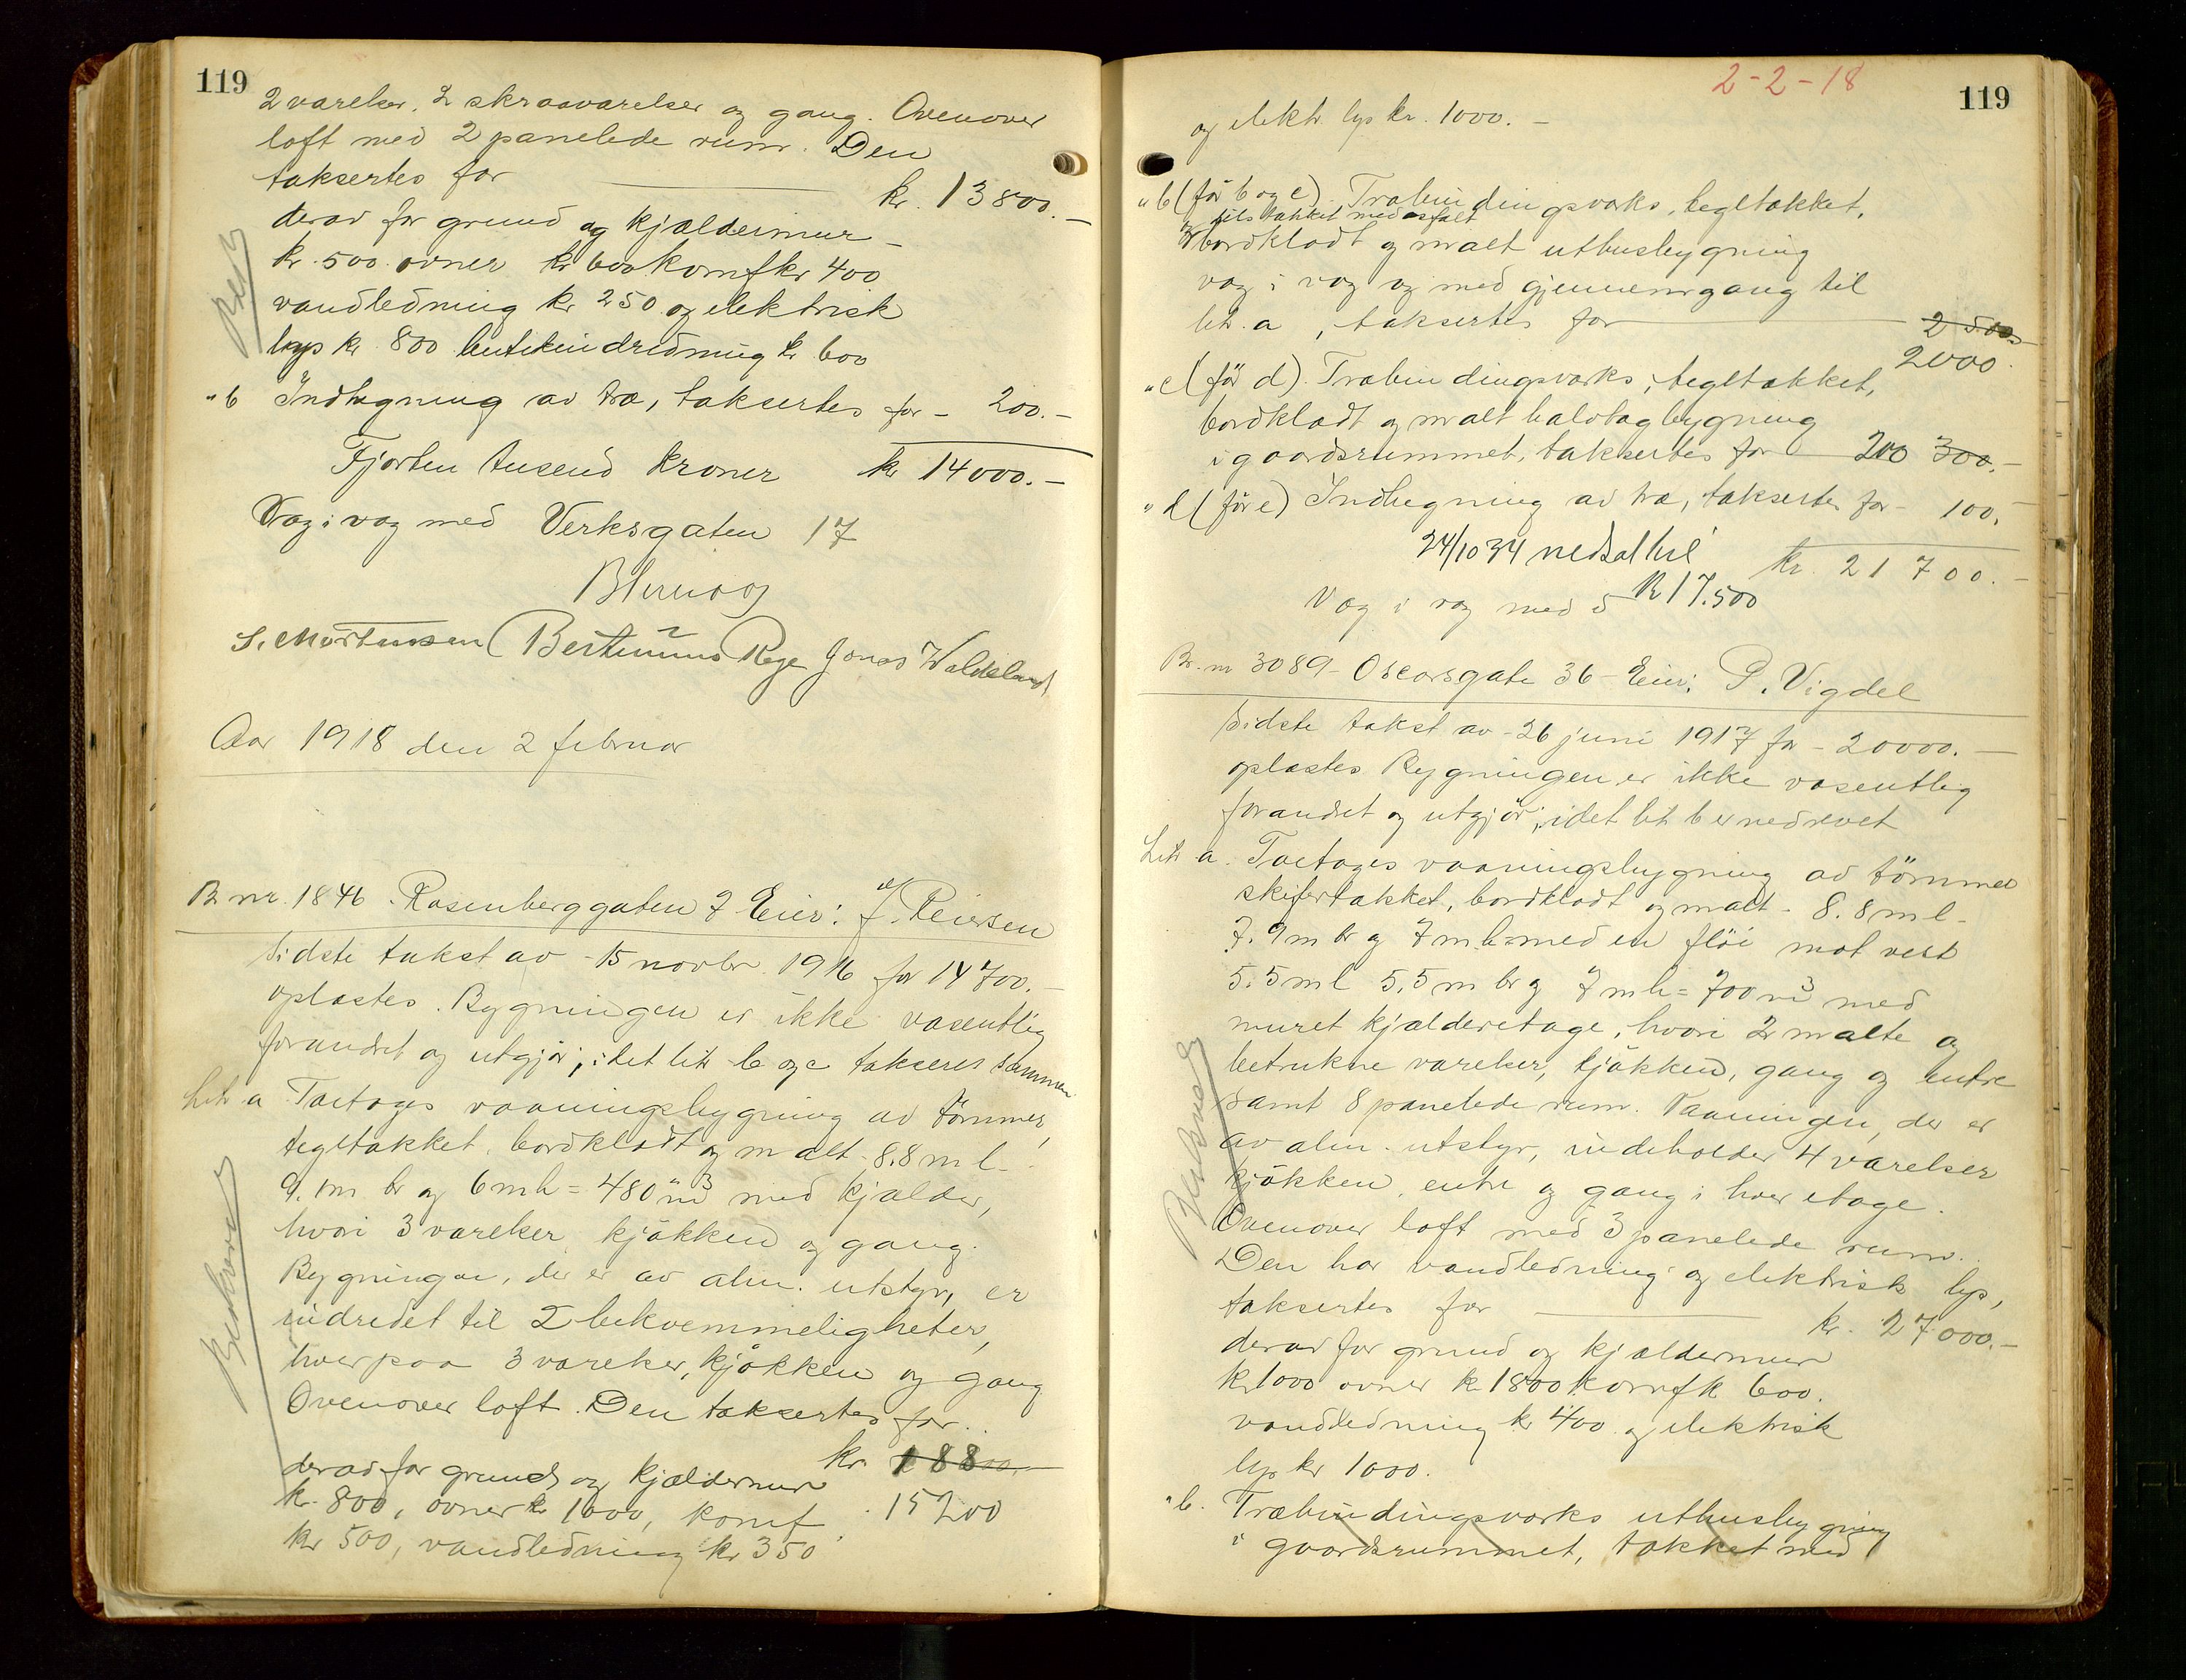 119
2 værelser, 2 skraaværelser og gang. Ovenover
loft med 2 panelede rum. Den
taksertes for kr. 13800.-
derav for grund og kjældermur -
kr. 500. ovner kr 600 komf kr 400
vandledning kr 250 og elektrisk
lys kr 800 butikindredning kr 600
" b Indhegning av træ, taksertes for - 200.-
Fjorten tusend kroner kr 14000.-
Væg i væg med Verksgaten 17
S. Mortensen Bertinius Rege Jonas
Aar 1918 den 2 februar
B. nr. 1846. Rosenberggaten 7 Eier: J. Reiersen
Sidste takst av 15 novbr. 1916 for 14700.-
oplæstes. Bygningen er ikke væsentlig
forandret og utgjør; idet litr b og c takseres sammen
Litr a Toetages vaaningsbygning av tømmer,
tegltækket, bordklædt og malt - 8.8 m l -
9.1 m br og 6 m h = 480 m³ med kjælder,
hvori 3 værelser kjøkken og gang.
Bygningen, der er av alm. utstyr, er
indredet til 2 bekvemmeligheter,
hver paa 3 værelser, kjøkken og gang
Ovenover loft. Den taksertes for
kr. 18800.-
derav for grund og kjældermur
15200
kr. 800, ovner kr 1000, komf
kr 500, vandledning kr 350
2-2-18
119
og elektr. lys kr. 1000. -
" b (før b og c). Træbindingsværks, tegltækket,
og dels tækket med asfalt
bordklædt og malt uthusbygning
væg i væg og med gjennemgang til
litr. a, taksertes for 2500.-
2000.
" c (før d). Træbindingsværks, tegltækket,
bordklædt og malt halvtagbygning
i gaardsrummet, taksertes for 200 300.-
" d (før e) Indhegning av træ, taksertes for - 100.-
24/10 34 nedsat til kr. 21700.-
Væg i væg med 5 kr 17.500
Br. nr 3089 - Oscarsgate 36 - Eier: P. Vigdel
Sidste takst av - 26 juni 1917 for - 20000. -
oplæstes Bygningen er ikke væsentlig
forandret og utgjør; idet litr b er nedrevet
Litr a. Toetages vaaningsbygning av tømmer
skifertækket, bordklædt og malt - 8.8 m l -
7.9 m br og 7 m h = med en fløi mot vest
5.5 m l 5.5 m br og 7 m h = 700 m³ med
muret kjælderetage, hvori 2 malte og
betrukne værelser, kjøkken, gang og entre
samt 8 panelede rum. Vaaningen, der er
av alm. utstyr, indeholder 4 værelser
kjøkken, entre og gang i hver etage.
Ovenover loft med 3 panelede rum.
Den har vandledning og elektrisk lys,
taksertes for kr. 27000.-
derav for grund og kjældermur
kr 1000 ovner kr 1800 komf kr 600.
vandledning kr 400 og elektrisk
lys kr 1000.
" b. Træbindingsværks uthusbygning
i gaardsrummet, tækket med